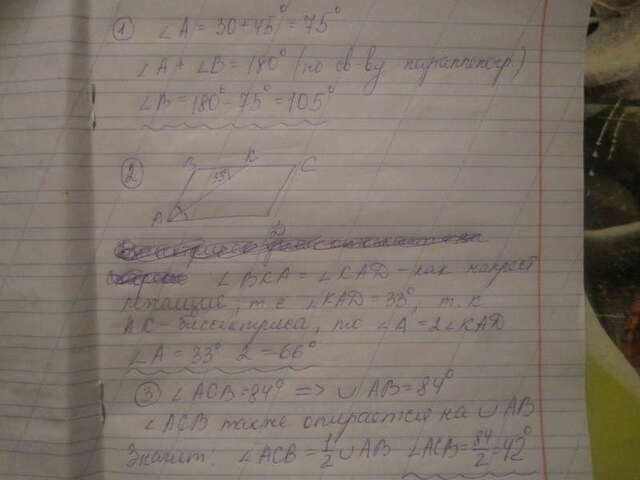 ① ∠A = 30 + 45° = 75°
∠A + ∠B = 180° (по св-ву параллелогр.)
∠B = 180° - 75° = 105°
②
B K C
33°
A D
∠BKA = ∠KAD - как накрест
лежащие, т.е ∠KAD = 33°, т.к
AK - биссектриса, то ∠A = 2∠KAD
∠A = 33° 2 = 66°
③ ∠ACB = 84° => ∪ AB = 84°
∠ACB также опирается на ∪ AB
Значит: ∠ACB = 1/2 ∪ AB ∠ACB = 84/2 = 42°